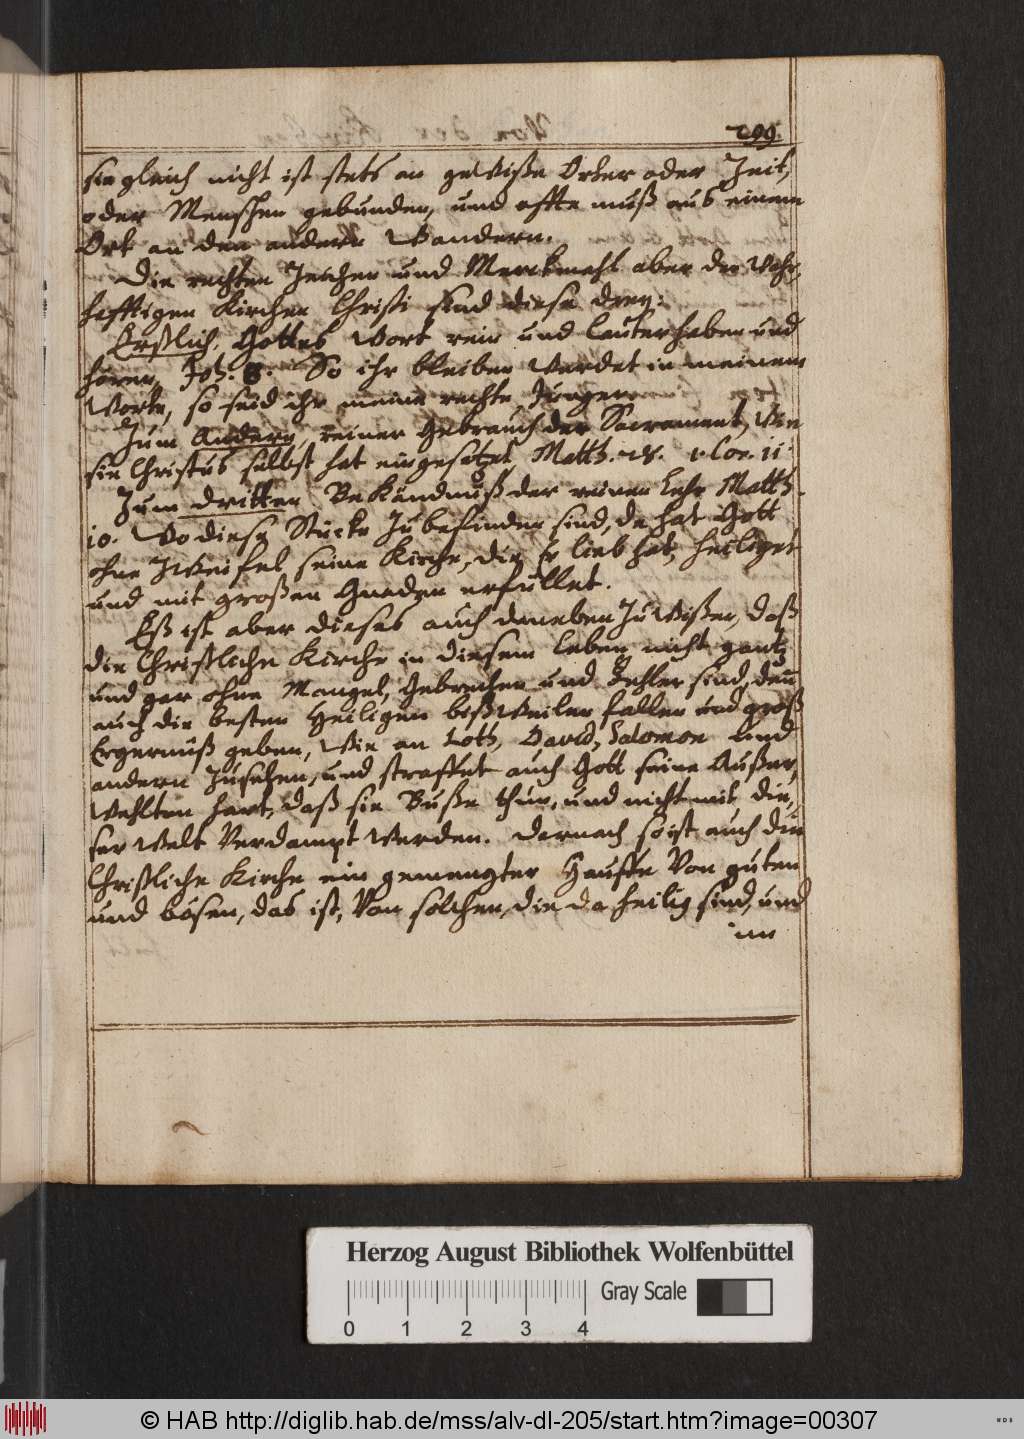 299.
sie gleich nicht ist stets an gewiße Örter oder Zeit,
oder Menschen gebunden, und offte muß aus einem
Ort an den andern Wandern.
Die rechten Zeichen und Merckmahl aber der Wahr,
hafftigen Kirchen Christi sind diese drey:
Erstlich, Gottes Wort rein und lauter haben und
hören, Joh. 8. So ihr bleiben werdet in meinem
Worte, so seid ihr meine rechte Jünger.
Zum Andern, reiner Gebrauch der Sacrament, Wie
sie Christus selbst hat eingesetzet Matth. 28. 1. Cor. 11.
Zum dritten Bekändnüß der reinen Lehr Matth.
10. Wo diese Stücke zu befinden sind, da hat Gott
ohne Zweifel seine Kirche, die Er lieb hat, heiliget
und mit großen Gnaden erfüllet.
Eß ist aber dieses auch darneben zu wißen, daß
die Christliche Kirche in diesem Leben nicht gantz
und gar ohne Mangel, Gebrechen und Fehler sind, denn
auch die besten Heiligen bißweilen fallen und groß
Ergernüß geben, Wie an Loth, David, Salomon und
andern zusehen, und straffet auch Gott seine Außer,
wehlten hart, daß sie Buße thun, und nicht mit die,
ser Welt Verdampt werden. Darnach so ist auch die
Christliche Kirche ein gemengter Hauffe Von guten
und bösen, das ist, Von solchen, die da heilig sind, und
im
Herzog August Bibliothek Wolfenbüttel
Gray Scale
0 1 2 3 4
© HAB http://diglib.hab.de/mss/alv-dl-205/start.htm?image=00307